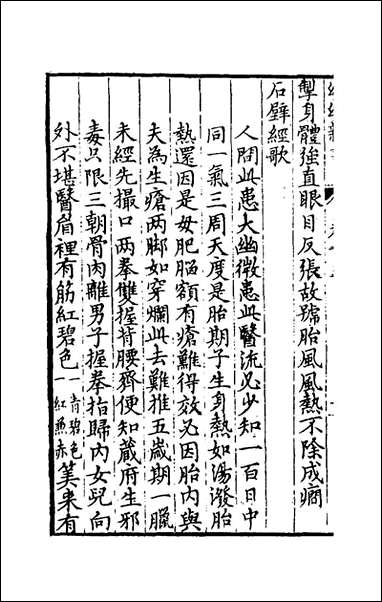 掣身體強直眼目反張故號胎風風熱不除成癎
石壁經歌
人間此患大幽微患此醫流必少知一百日中
同一氣三周天度是胎期子生身熱如湯潑胎
熱還因是母肥腦額有瘡難得效必因胎内與
夫為生瘡两脚如穿爛此去難推五歲期一臘
未經先撮口两拳雙握背腰齊便知蔵府生邪
毒只限三朝骨肉離男子握拳指歸内女兒向
外不堪醫眉裡有筋紅碧色一青碧色一紅兼赤筭来有